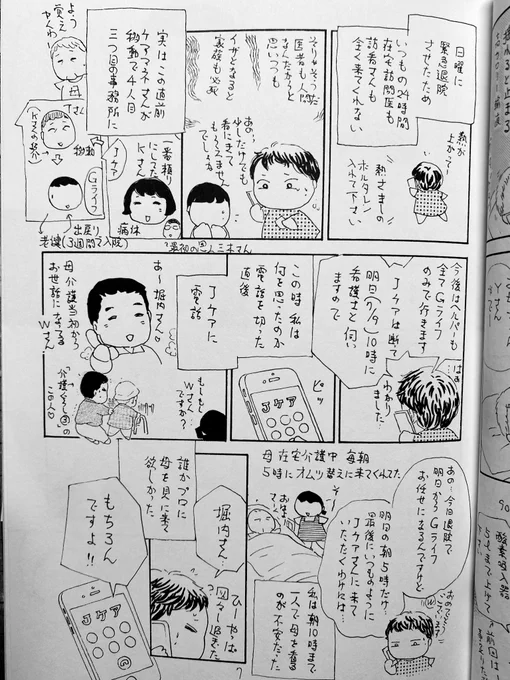 日曜に
緊急退院
させたため
いつもの24時間
在宅訪問医も
訪看さんも
全く来てくれない
熱が
上がって〜
熱さましの
ボルタレン
入れて下さい
そりゃそうだ
医者も人間
なんだからと
思いつつも
イザとなると
家族も必死
あの…
少しだけでも
看にきて
もらえません
でしょうか
実はこの直前
ケアマネさんが
異動で4人目
三つ目の事務所に
よう
覚え
やんわ
母
Tさん
Kさんの紹介
異動
Gライフ
出戻り
老健(3週間で入院)
Jケア
一番頼り
にしてた
Kさん
病休
最初の恩人三木さん
今後はヘルパーも
全てGライフ
のみで行きます
Jケアは断って
明日(7/9)10時に
看護士と伺い
ますので
はぁ…
わかり
ました…
ピッ
Jケア
この時私は
何を思ったのか
電話を切った
直後
Jケアに
電話
もしもし
Wさん
ですか?
あ〜堀内さん
母介護当初から
お世話になってる
Wさん
この人
母在宅介護中 毎朝
5時にオムツ替えに来てくれてた
あの〜今日退院で
明日からGライフ
にお任せになるんですけど
明日の朝5時だけ…
最後にいつものように
Jケアさんに来て
いただくわけには…
おめでとう
ございます
W
私は朝10時まで
一人で母を看る
のが不安だった
誰かプロに
母を見に来て
欲しかった
堀内さん…
ひーやっぱ
図々し過ぎた
もちろん
ですよ!!
Jケア